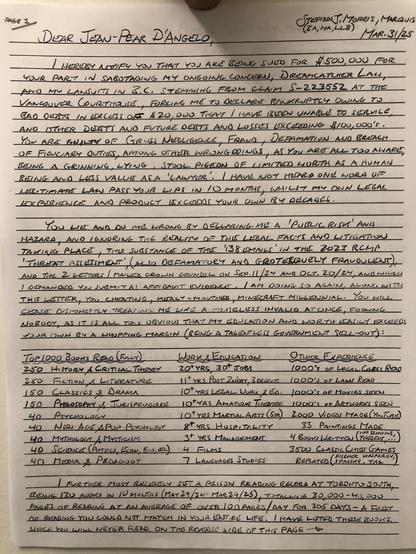 PAGE 1
STEPHEN J. MORRIS, MARQUIS
(BA, MA, LLB)
MAR. 31/25
DEAR JEAN-PEAR D'ANGELO,
I HEREBY NOTIFY YOU THAT YOU ARE BEING SUED FOR $500,000 FOR
YOUR PART IN SABOTAGING MY ONGOING CONCERN, DREAMCATCHER LAW,
AND MY LAWSUITS IN B.C. STEMMING FROM CLAIM S-223552 AT THE
VANCOUVER COURTHOUSE, FORCING ME TO DECLARE BANKRUPTCY OWING TO
BAD DEBTS IN EXCESS OF $20,000 THAT I HAVE BEEN UNABLE TO SERVICE,
AND OTHER DEBTS AND FUTURE DEBTS AND LOSSES EXCEEDING $100,000'S.
YOU ARE GUILTY OF GROSS NEGLIGENCE, FRAUD, DEFAMATION AND BREACH
OF FIDUCIARY DUTIES, AMONG OTHER WRONGDOINGS, AS YOU ARE ALL TOO AWARE,
BEING A GRINNING, LYING STOOL PIGEON OF LIMITED WORTH AS A HUMAN
BEING AND LESS VALUE AS A 'LAWYER'. I HAVE NOT HEARD ONE WORD OF
LEGITIMATE LAW PASS YOUR LIPS IN 10 MONTHS, WHILST MY OWN LEGAL
EXPERIENCE AND PRODUCT EXCEEDS YOUR OWN BY DECADES.
YOU LIE AND DO ME WRONG BY DECLARING ME A 'PUBLIC RISK' AND
HAZARD, AND IGNORING THE REALITY OF THE LEGAL FACTS AND LITIGATION
TAKING PLACE, THE SUBSTANCE OF THE '38 EMAILS' IN THE 2023 RCMP
'THREAT ASSESSMENT' (ALSO DEFAMATORY AND GROTESQUELY FRAUDULENT),
AND THE 2 LETTERS I MAILED CROWN COUNSEL ON SEP. 11/24 AND OCT. 20/24, AND WHICH
I DEMANDED YOU SUBMIT AS AFFIDAVIT EVIDENCE. I AM DOING SO AGAIN, ALONG WITH
THIS LETTER, YOU CHEATING, MEALY-MOUTHED, MINECRAFT MILLENNIAL. YOU WILL
CEASE DISHONESTLY TREATING ME LIKE A MINDLESS INVALID AT ONCE, FOOLING
NOBODY, AS IT IS ALL TOO OBVIOUS THAT MY EDUCATION AND WORTH EASILY EXCEEDS
YOUR OWN BY A WHOPPING MARGIN (BEING A TALENTLESS GOVERNMENT SELL-OUT):
TOP 1000 BOOKS READ (FULLY) WORK & EDUCATION OTHER EXPERIENCE
250 HISTORY & CRITICAL THEORY 20+ YRS, 30+ JOBS 1000'S OF LEGAL CASES READ
250 FICTION & LITERATURE 11+ YRS POST 2NDARY, 3 DEGREES 1000'S OF LAWS READ
150 CLASSICS & DRAMA 10+ YRS LEGAL WORK & ED. 1000'S OF MOVIES SEEN
150 PHILOSOPHY & JURISPRUDENCE 10+ YRS AMATEUR THEATRE 1000'S OF ARTWORKS SEEN
40 PSYCHOLOGY 10+ YRS MARTIAL ARTS 2000 VIDEOS MADE (YOUTUBE)
40 NEW AGE & POP PSYCHOLOGY 8+ YRS HOSPITALITY 33 PAINTINGS MADE
40 MYTHOLOGY & MYSTICISM 3+ YRS MANAGEMENT 4 BOOKS WRITTEN
40 SCIENCE (PHYSICS, ECON, EVO, ETC) 4 FILMS 3500 CLASSIC CHESS GAMES
40 MEDIA & PEDAGOGY 7 LANGUAGES STUDIES REPLAYED (FISCHER, KASPAROV, SPASSKY, TAL
I FURTHER MOST RECENTLY SET A PRISON READING RECORD AT TORONTO SOUTH,
BEING 130 BOOKS IN 10 MONTHS (MAY 29/24-MAR 29/25), TOTALLING 30,000-40,000
PAGES OF READING AT AN AVERAGE OF OVER 100 PAGES/DAY FOR 305 DAYS - A FEAT
OF READING YOU COULD NOT MATCH IN YOUR ENTIRE LIFE. I HAVE LISTED THESE BOOKS,
WHICH YOU WILL NEVER READ, ON THE REVERSE SIDE OF THIS PAGE